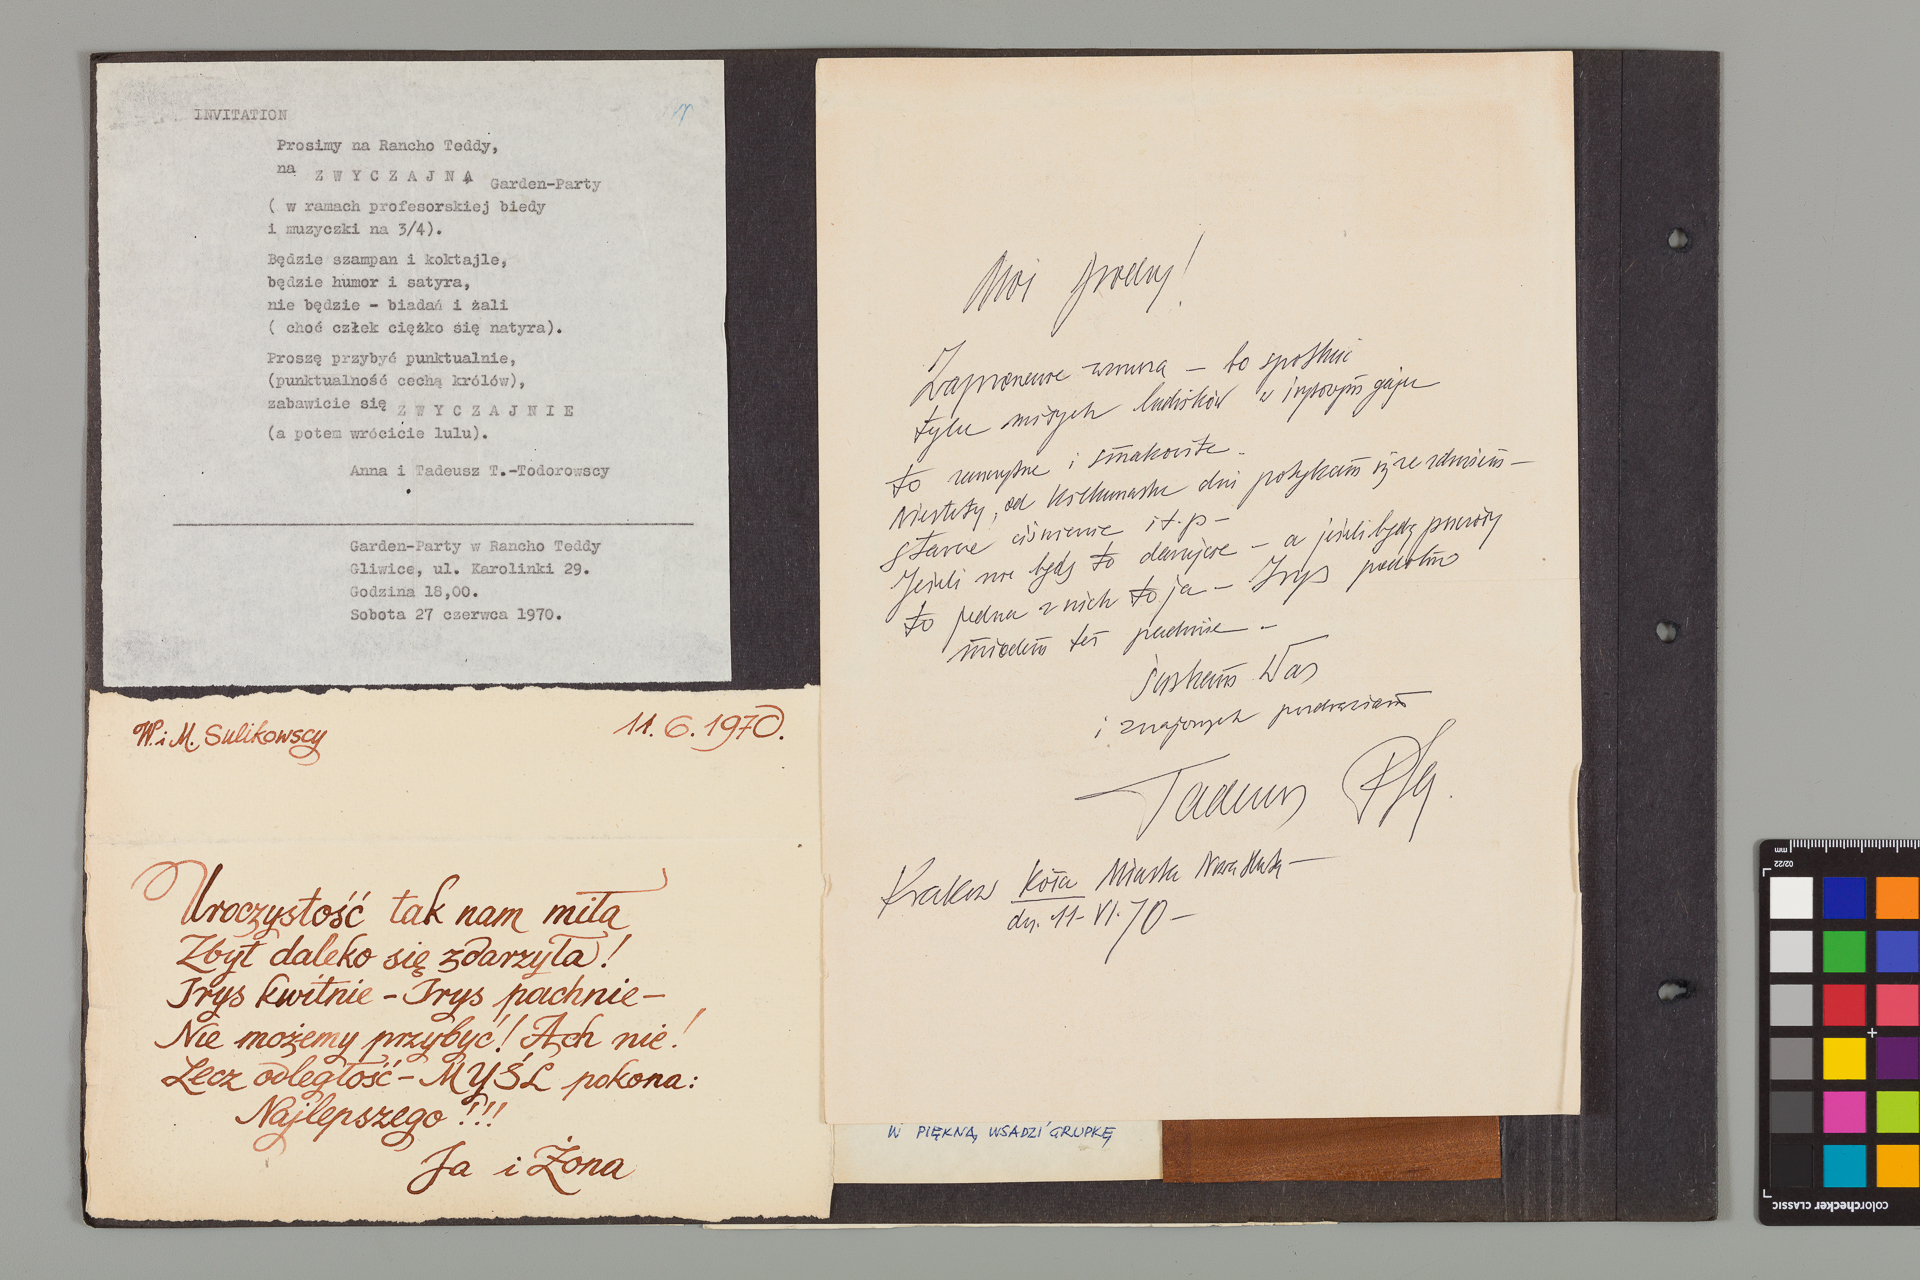 INVITATION
Prosimy na Rancho Teddy,
na Z W Y C Z A J N Ą Garden-Party
( w ramach profesorskiej biedy
i muzyczki na 3/4).
Będzie szampan i koktajle,
będzie humor i satyra,
nie będzie - biadań i żali
( choć człek ciężko się natyra).
Proszę przybyć punktualnie,
(punktualność cechą królów),
zabawicie się Z W Y C Z A J N I E
(a potem wrócicie lulu).
Anna i Tadeusz T.-Todorowscy
Garden-Party w Rancho Teddy
Gliwice, ul. Karolinki 29.
Godzina 18,00.
Sobota 27 czerwca 1970.
W. i M. Sulikowscy
11. 6. 1970.
Uroczystość tak nam miła
Zbyt daleko się zdarzyła!
Irys kwitnie - Irys pachnie -
Nie możemy przybyć! Ach nie!
Lecz odległość - MYŚL pokona:
Najlepszego!!!
Ja i Żona
Moi drodzy!
Zaproszenie wzrusza - bo spotkać
tylu miłych ludzików w irysowym gaju
to zaszczytne i smakowite -
Niestety, od kilkunastu dni potykam się ze zdrowiem -
stare ciśnienie i t. p -
Jeżeli nie będę to - a jeżeli będą
to jedna z nich to ja - Irys podobno
miodem też pachnie -
Ściskam Was
i znajomych pozdrawiam
Tadeusz
Kraków Koła Miasta Nowa Huta -
dn. 11 - VI. 70 -
W PIĘKNĄ, WSADZI' GRUPKĘ
02/22
mm
colorchecker CLASSIC